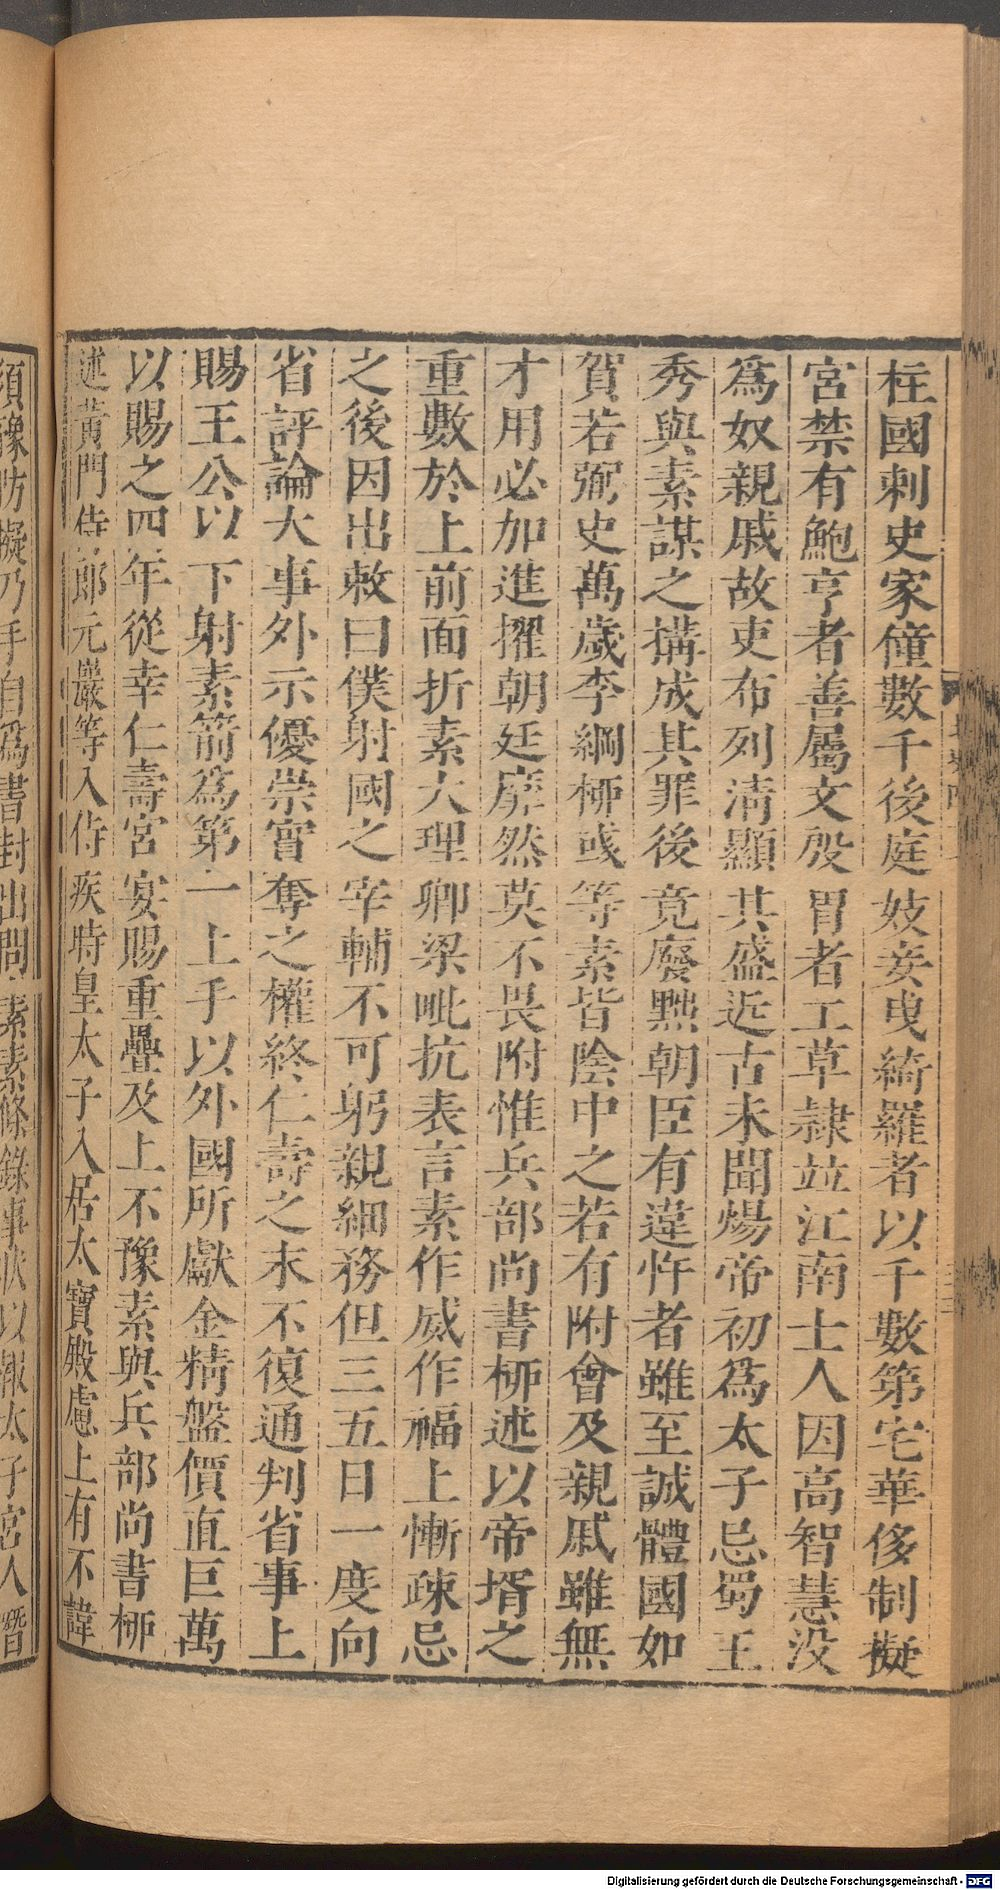 柱國刺史家僮數千後庭妓妾曳綺羅者以千數第宅華侈制擬
宮禁有鮑亨者善屬文殷胄者工草隷竝江南士人因高智慧没
爲奴親戚故吏布列清顯其盛近古未聞煬帝初爲太子忌蜀王
秀與素謀之搆成其罪後竟廢黜朝臣有違忤者雖至誠體國如
賀若弼史萬歲李綱栁彧等素皆陰中之若有附會及親戚雖無
才用必加進擢朝廷靡然莫不畏附惟兵部尚書栁述以帝壻之
重數於上前面折素大理卿梁毗抗表言素作威作福上慚疎忌
之後因出敕曰僕射國之宰輔不可躬親細務但三五日一度向
省評論大事外示優崇實奪之權終仁壽之末不復通判省事上
賜王公以下射素箭爲第一上手以外國所獻金精盤價直巨萬
以賜之四年從幸仁壽宮宴賜重疊及上不豫素與兵部尚書栁
述黄門侍郎元巖等入侍疾時皇太子入居太寶殿慮上有不諱
須豫防擬乃手自爲書封出問素素條錄事狀以報太子宮人
Digitalisierung gefördert durch die Deutsche Forschungsgemeinschaft - DFG